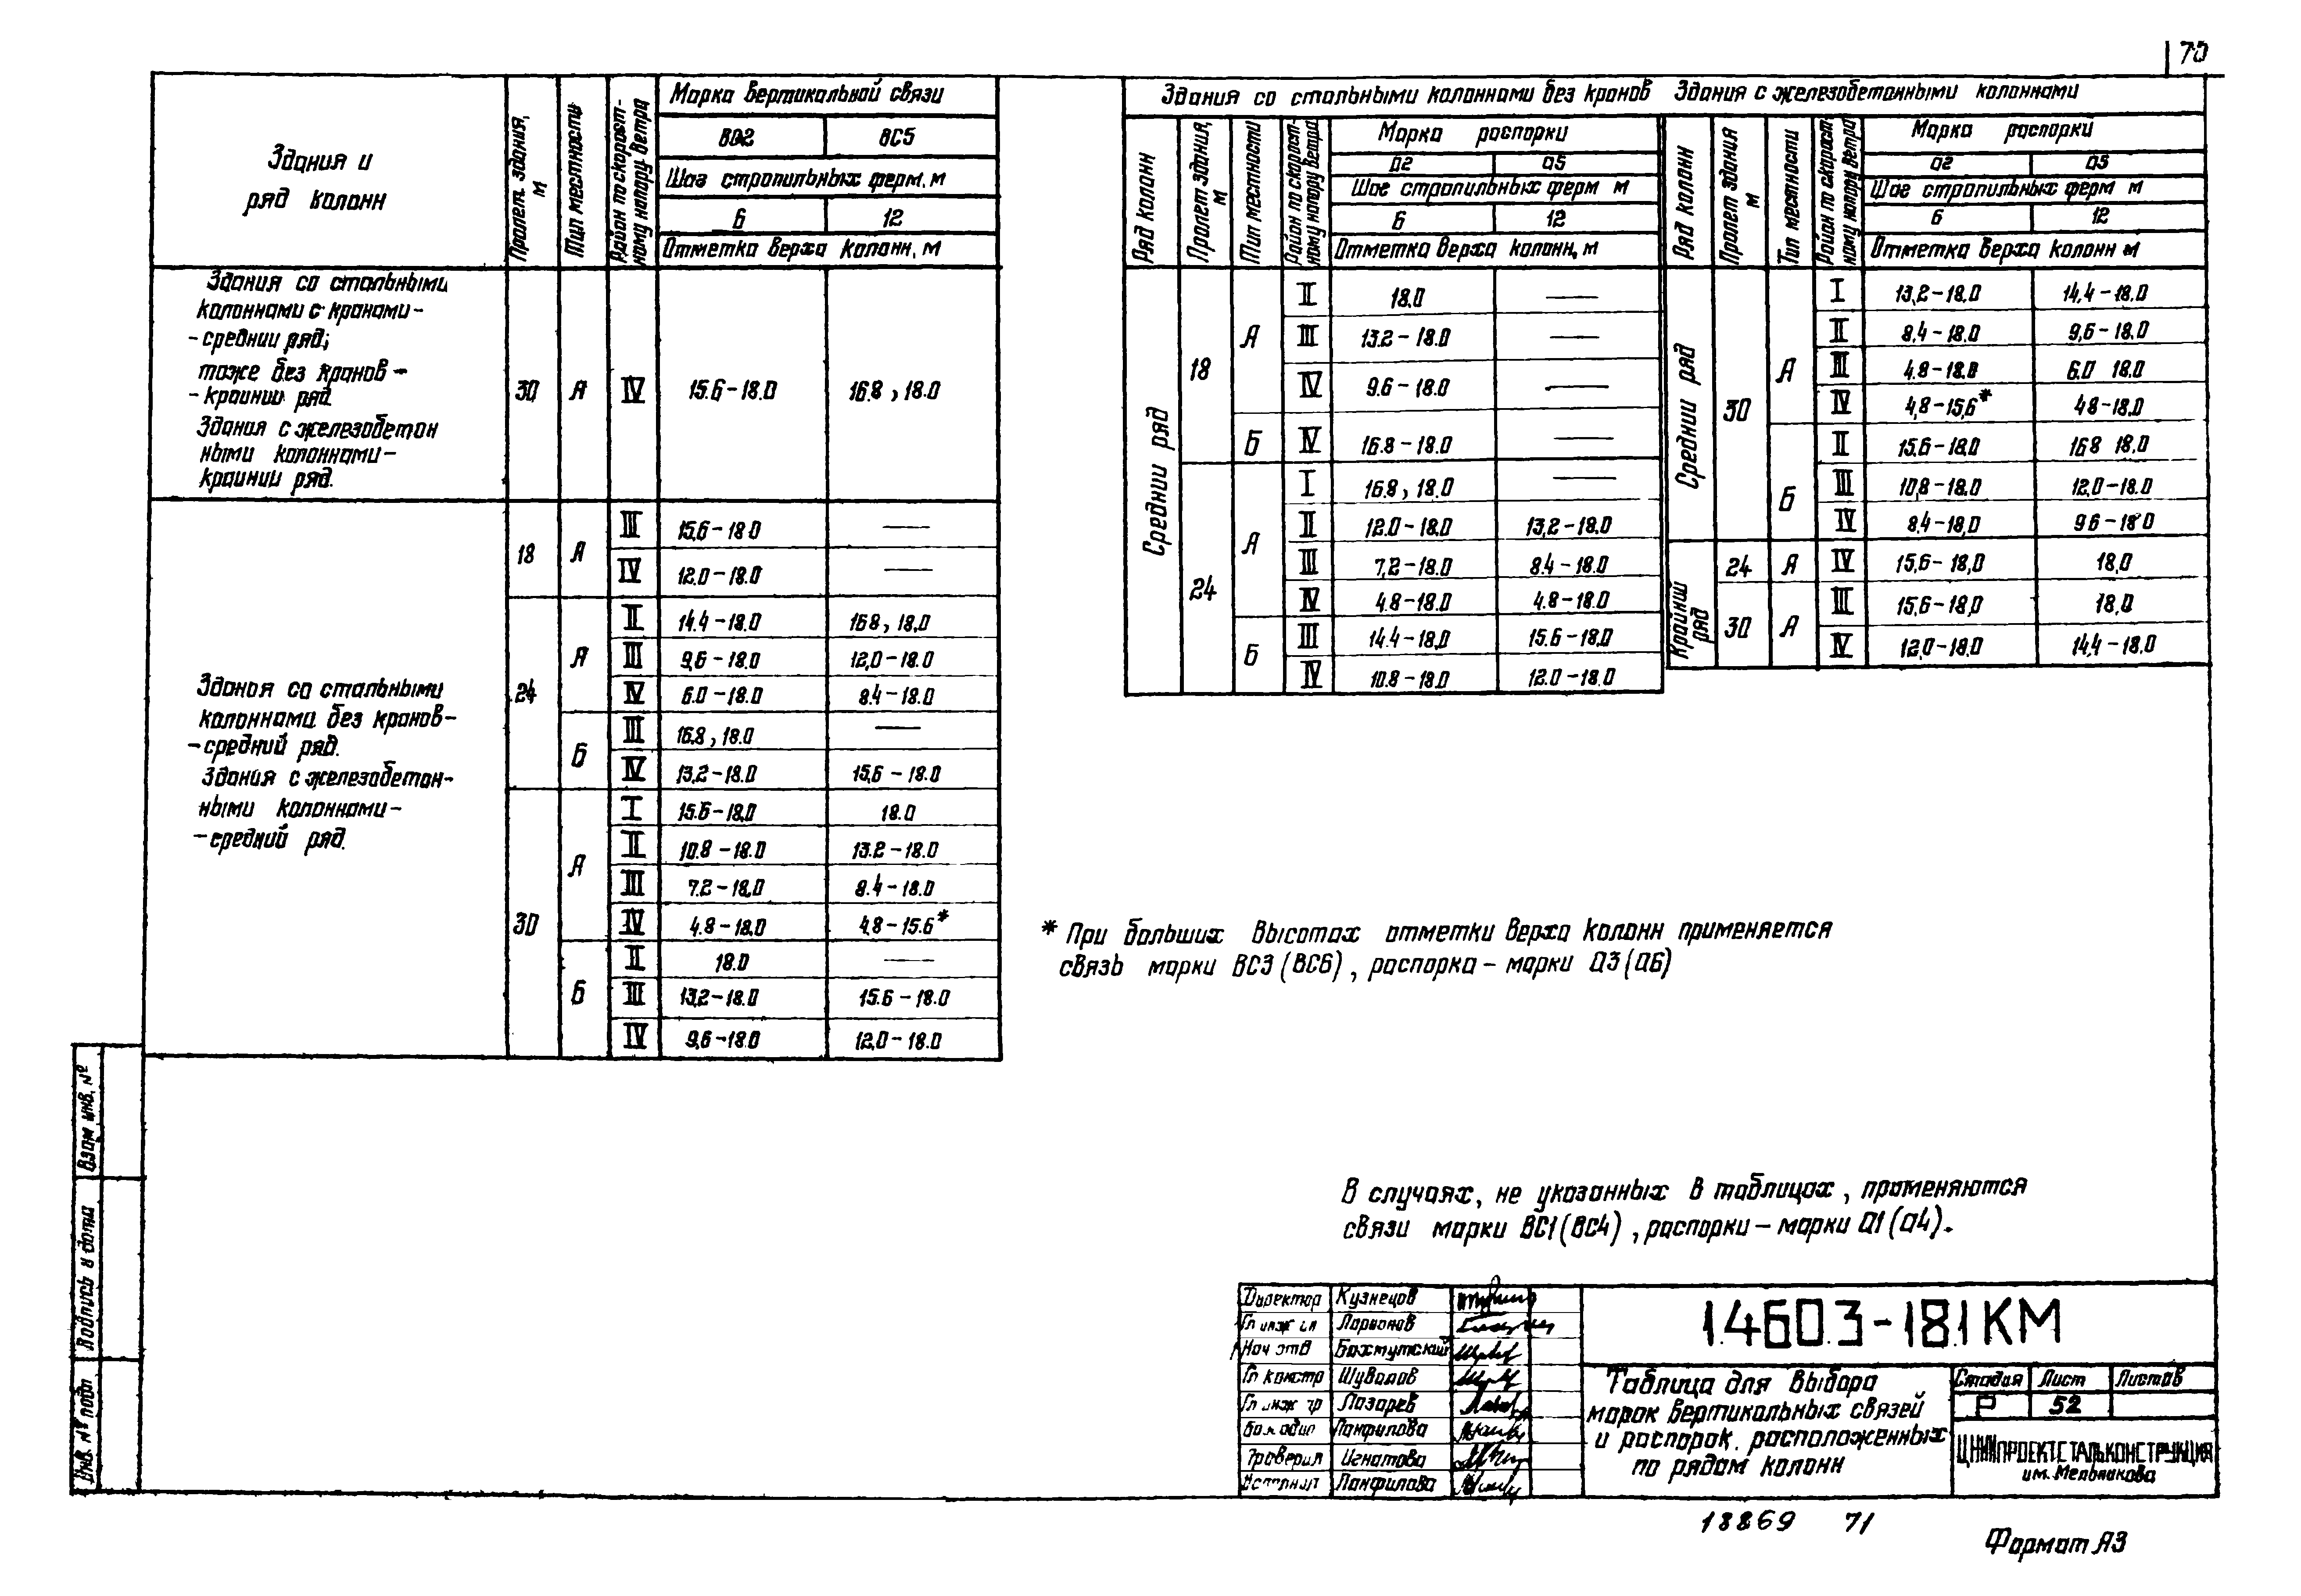 70
Здания и
ряд колонн
Пролет здания, м
Тип местности
Район по скорост-
ному напору ветра
Марка вертикальной связи
ВС2 ВС5
Шаг стропильных ферм, м
6 12
Отметка верха колонн, м
Здания со стальными
колоннами с кранами-
-средний ряд;
тоже без кранов-
-крайний ряд.
Здания с железобетон
ными колоннами-
крайний ряд.
30 А IV 15.6-18.0 16.8, 18.0
Здания со стальными
колоннами без кранов-
-средний ряд.
Здания с железобетон-
ными колоннами-
-средний ряд.
18 А III 15,6-18.0 —
IV 12.0-18.0 —
24 А II 14.4-18.0 16 8, 18,0
III 9,6-18.0 12,0-18.0
IV 6.0-18.0 8.4-18.0
Б III 16,8, 18.0 —
IV 13,2-18.0 15,6-18.0
30 А I 15.6-18,0 18.0
II 10.8-18.0 13.2-18.0
III 7.2-18,0 8.4-18.0
IV 4.8-18,0 4,8-15.6*
Б II 18.0 —
III 13,2-18.0 15.6-18.0
IV 9,6-18.0 12,0-18.0
Здания со стальными колоннами без кранов
Ряд колонн
Пролет здания, м
Тип местности
Район по скорост-
ному напору ветра
Марка распорки
Д2 Д5
Шаг стропильных ферм м
6 12
Отметка верха колонн, м
Средний ряд
18 А II 18.0 —
III 13.2-18.0 —
IV 9.6-18.0 —
Б IV 16.8-18.0 —
24 А I 16.8, 18.0 —
II 12.0-18.0 13,2-18.0
III 7,2-18.0 8.4-18.0
IV 4.8-18.0 4.8-18.0
Б III 14.4-18,0 15.6-18,0
IV 10.8-18.0 12.0-18.0
Здания с железобетонными колоннами
Ряд колонн
Пролет здания м
Тип местности
Район по скорост-
ному напору ветра
Марка распорки
Д2 Д5
Шаг стропильных ферм м
6 12
Отметка верха колонн м
Средний ряд
30 А I 13,2-18.0 14,4-18.0
II 8,4-18.0 9,6-18.0
III 4.8-18.0 6.0 18.0
IV 4,8-15,6* 4 8-18.0
Б II 15.6-18,0 16 8 18.0
III 10,8-18.0 12.0-18.0
IV 8.4-18,0 9 6-18 0
Крайний ряд
24 А IV 15,6-18,0 18,0
30 А III 15,6-18,0 18,0
IV 12,0-18.0 14,4-18.0
* При больших высотах отметки верха колонн применяется
связь марки ВС3 (ВС6), распорка - марки Д3 (Д6)
В случаях, не указанных в таблицах, применяются
связи марки ВС1 (ВС4), распорки - марки Д1 (Д4).
Взам инв. №
Подпись и дата
Инв. № подл
Директор Кузнецов
Гл инж ин Ларионов
Нач отд Бахмутский
Гл констр Шувалов
Гл инж пр Лазарев
Панфилова
Проверил Игнатова
Исполнил Панфилова
1.460.3-18.1 КМ
Таблица для выбора
марок вертикальных связей
и распорок, расположенных
по рядам колонн
Стадия Лист Листов
Р 52
ЦНИИПРОЕКТСТАЛЬКОНСТРУКЦИЯ
им. Мельникова
18869 71
Формат А3